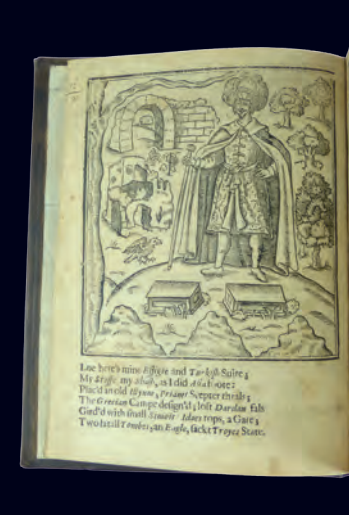 Loe here's mine Effigie and Turkish Suite;
My Staffe, my Shasse, as I did Asia foote:
Plac'd in old Ilium; Priams Scepter thralls:
The Grecian Campe design'd; lost Dardan falls
Gird'd with small Simois: Idaes tops, a Gate;
Two fatall Tombes, an Eagle, sackt Troyes State.